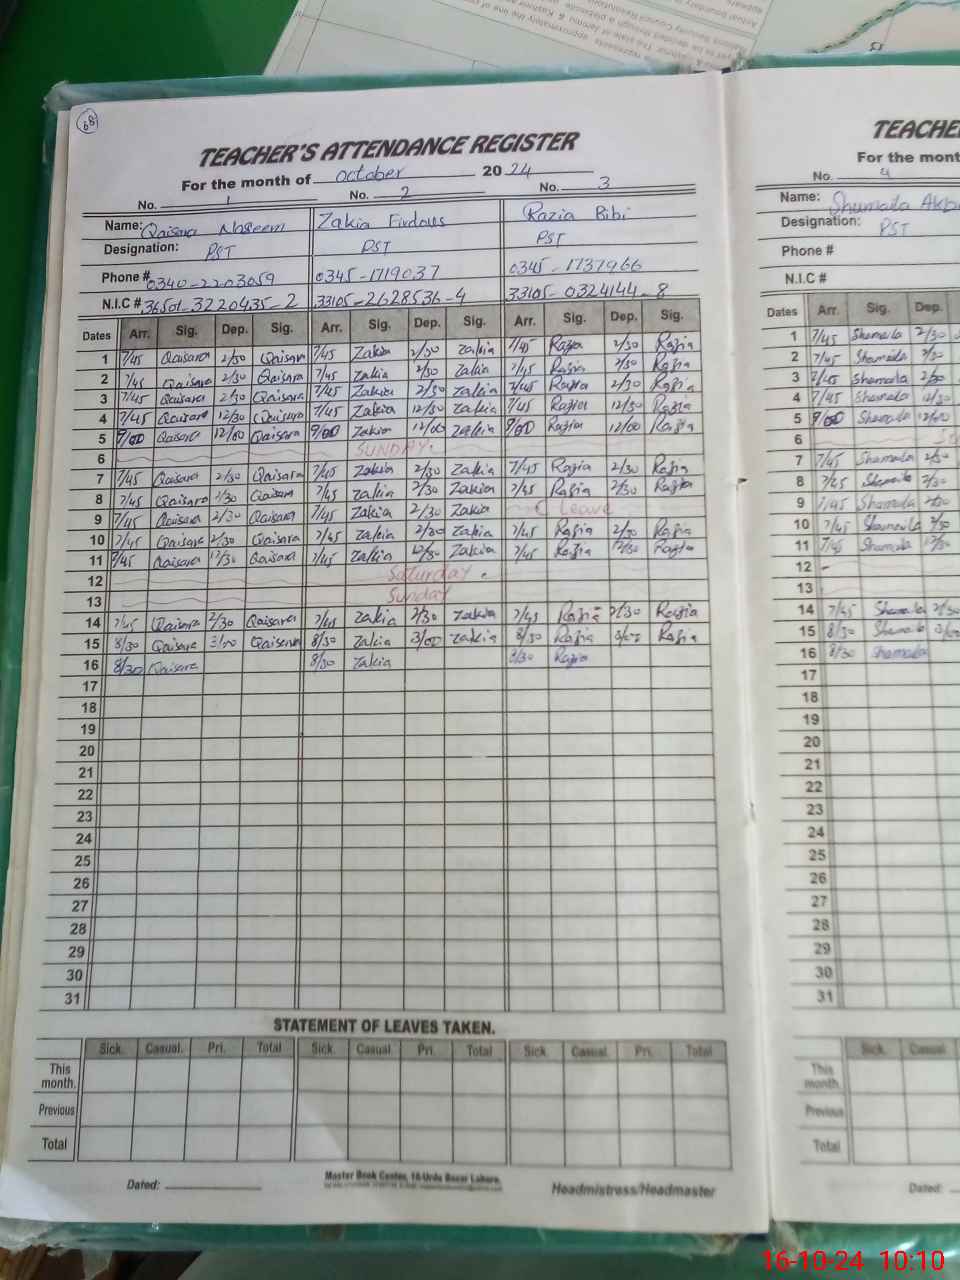 68
TEACHER'S ATTENDANCE REGISTER
For the month of October 2024
No. 1 No. 2 No. 3
Name: Qaisara Naseem Zakia Firdous Razia Bibi
Designation: PST PST PST
Phone # 0340-2203059 0345-1719037 0345-1737966
N.I.C # 36501-3220435-2 33105-2628536-4 33105-0324144-8
Dates Arr. Sig. Dep. Sig. Arr. Sig. Dep. Sig. Arr. Sig. Dep. Sig.
1 7/45 Qaisara 2/30 Qaisara 7/45 Zakia 2/30 Zakia 7/45 Razia 2/30 Razia
2 7/45 Qaisara 2/30 Qaisara 7/45 Zakia 2/30 Zakia 7/45 Razia 2/30 Razia
3 7/45 Qaisara 2/30 Qaisara 7/45 Zakia 2/30 Zakia 7/45 Razia 2/30 Razia
4 7/45 Qaisara 12/30 Qaisara 7/45 Zakia 12/30 Zakia 7/45 Razia 12/30 Razia
5 9/00 Qaisara 12/00 Qaisara 9/00 Zakia 12/00 Zakia 9/00 Razia 12/00 Razia
6 SUNDAY.
7 7/45 Qaisara 2/30 Qaisara 7/45 Zakia 2/30 Zakia 7/45 Razia 2/30 Razia
8 7/45 Qaisara 2/30 Qaisara 7/45 Zakia 2/30 Zakia 7/45 Razia 2/30 Razia
9 7/45 Qaisara 2/30 Qaisara 7/45 Zakia 2/30 Zakia C Leave
10 7/45 Qaisara 2/30 Qaisara 7/45 Zakia 2/30 Zakia 7/45 Razia 2/30 Razia
11 7/45 Qaisara 12/30 Qaisara 7/45 Zakia 12/30 Zakia 7/45 Razia 12/30 Razia
12 Saturday.
13 Sunday
14 7/45 Qaisara 2/30 Qaisara 7/45 Zakia 2/30 Zakia 7/45 Razia 2/30 Razia
15 8/30 Qaisara 3/00 Qaisara 8/30 Zakia 3/00 Zakia 8/30 Razia 3/00 Razia
16 8/30 Qaisara 8/30 Zakia 8/30 Razia
17
18
19
20
21
22
23
24
25
26
27
28
29
30
31
STATEMENT OF LEAVES TAKEN.
Sick. Casual. Pri. Total Sick. Casual. Pri. Total Sick Casual. Pri. Total
This month.
Previous
Total
Dated:
Master Book Center, 18-Urdu Bazar Lahore.
Headmistress/Headmaster
TEACHE
For the mont
No. 4
Name: Shumaila Akb
Designation: PST
Phone #
N.I.C #
Dates Arr. Sig. Dep.
1 7/45 Shamaila 2/30
2 7/45 Shamaila 2/30
3 7/45 Shamaila 2/30
4 7/45 Shamaila 12/30
5 9/00 Shamaila 12/00
6
7 7/45 Shamaila 2/30
8 7/45 Shamaila 2/30
9 7/45 Shamaila 2/30
10 7/45 Shamaila 2/30
11 7/45 Shamaila 12/30
12
13
14 7/45 Shamaila 2/30
15 8/30 Shamaila 3/00
16 8/30 Shamaila
17
18
19
20
21
22
23
24
25
26
27
28
29
30
31
Sick. Casual
This month
Previous
Total
Dated:
16-10-24 10:10